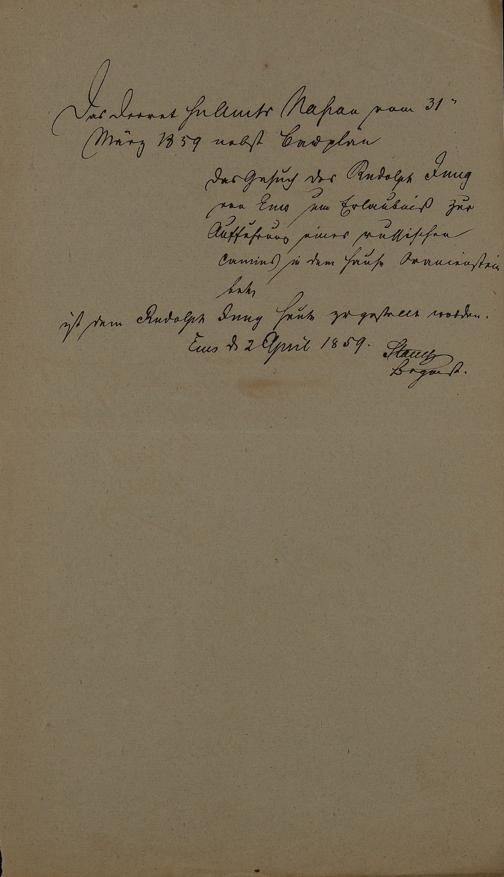 Das Decret Hzl. Amts Nassau vom 31n
März 1859 nebst Bauplan
das Gesuch des Rudolph Jung
von Ems um Erlaubniß zur
Aufführung eines russischen
Camins in dem Hause Oranienstein
betr.
ist dem Rudolph Jung heute zugestellt worden.
Ems d 2 April 1859.